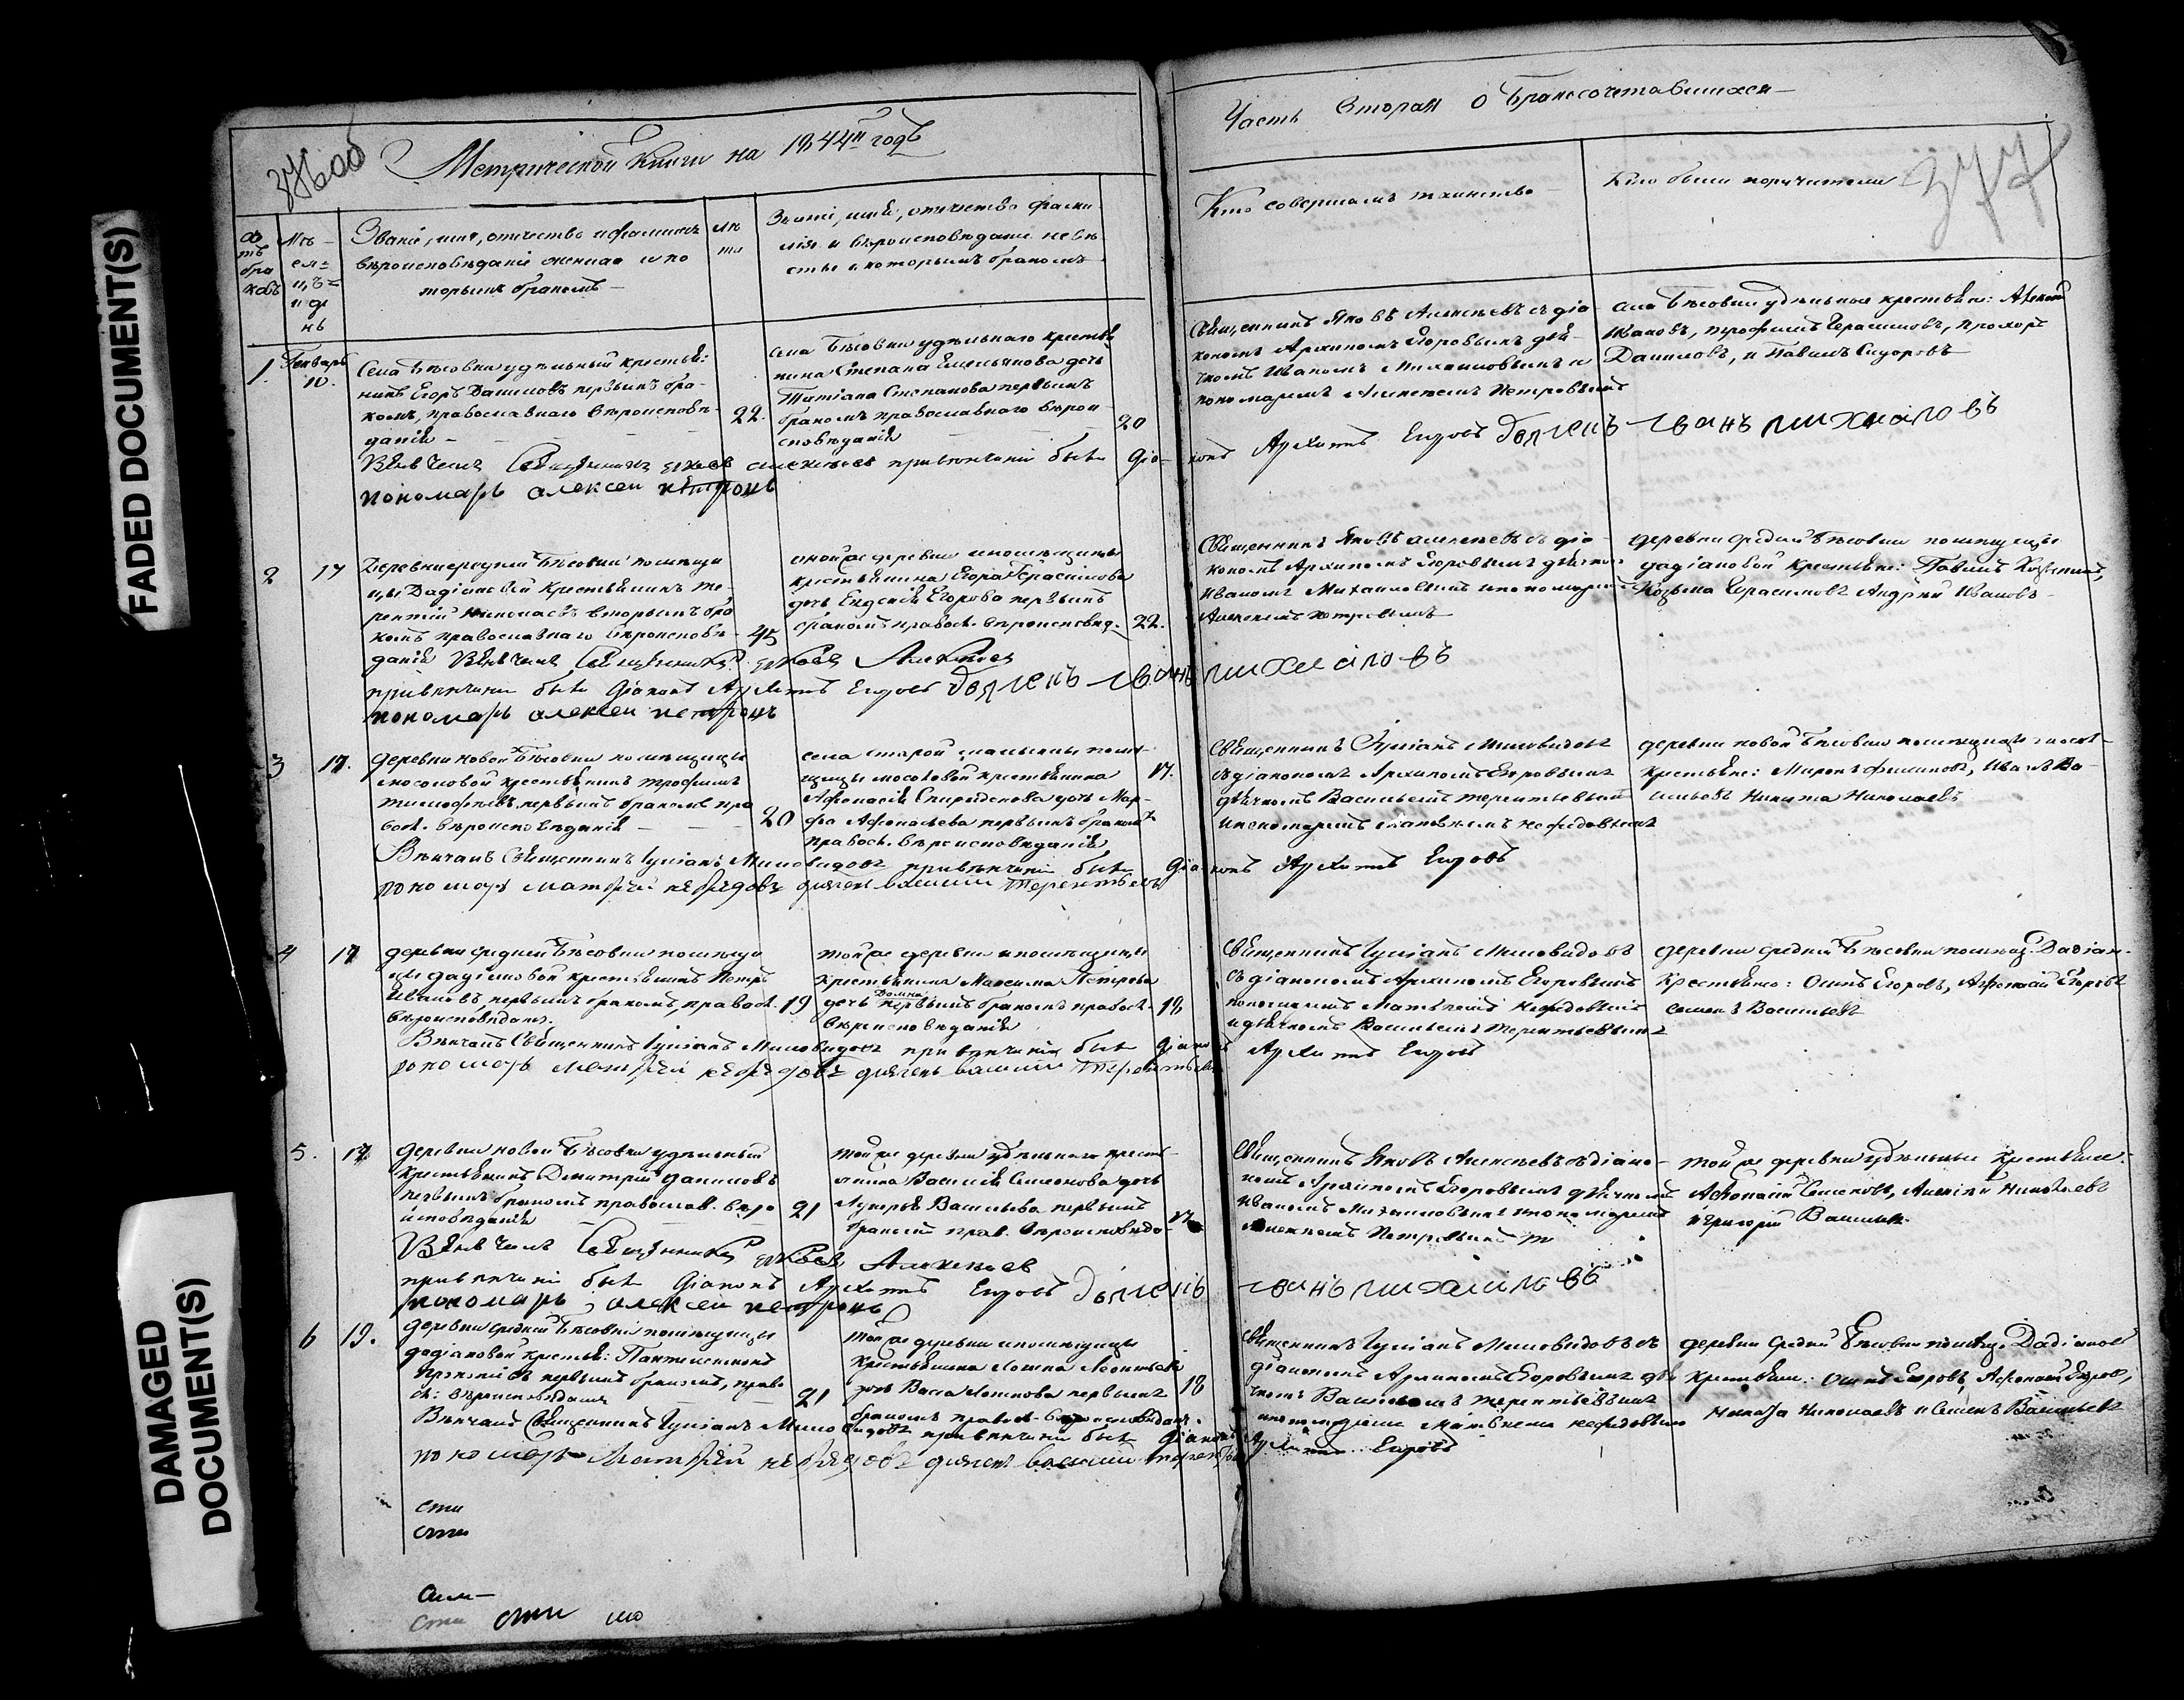 FADED DOCUMENT(S)
DAMAGED
DOCUMENT(S)
376об
Метрической Книги на 1844й годъ
Часть Вторая о Бракосочетавшихся
377
Званіе, имя, отчество и фамилія
вѣроисповѣданіе жениха и ко
торымъ бракомъ
лѣ
та
Званіе, имя, отчество фами
лія и вѣроисповѣданіе невѣ
сты и которымъ бракомъ
Кто совершалъ таинство
Кто были поручители
1.
Генварь
10.
Села Бѣсовки удѣльный крестья:
нинъ Егоръ Даниловъ первымъ бра
комъ, православнаго вѣроисповѣ
данія
22.
села Бѣсовки удѣльнаго крестья
нина Степана Емельянова дочь
Татіана Степанова первымъ
бракомъ православнаго вѣрои
сповѣданія
20
Священникъ Яковъ Алексѣевъ съ діа
кономъ Архипомъ Егоровымъ дья
чкомъ Иваномъ Михаиловымъ и
пономаремъ Алексѣемъ Петровымъ
села Бѣсовки удѣльные крестьяне:
Ивановъ, Трофимъ Герасимовъ, Прохоръ
Даниловъ, и Павелъ Сидоровъ
Вѣнчалъ Священникъ Яковъ Алексѣевъ привѣнчаніи былъ діаконъ Архипъ Егоровъ дьячекъ Иванъ Михайловъ
пономарь алексеи петровъ
2
17
Деревни средней Бѣсовки помѣщи
цы Дадіановой Крестьянинъ Те
рентій Николаевъ вторымъ бра
комъ православнаго вѣроисповѣ
даніи
45
оной же деревни и помѣщицы
крестьянина Егора Герасимова
дочь Евдокія Егорова первымъ
бракомъ правосл. вѣроисповѣд.
22.
Священникъ Яковъ Алексѣевъ съ діа
кономъ Архипомъ Егоровымъ дьячкомъ
Иваномъ Михаиловымъ и пономаремъ
Алексѣемъ Петровымъ
деревни средней Бѣсовки помѣщицы
Дадіановой Крестьяне: Павелъ
Козьма Герасимовъ Андрей Ивановъ
Вѣнчалъ Священникъ Яковъ Алексѣевъ
привѣнчаніи былъ діаконъ Архипъ Егоровъ дьячекъ Иванъ Михайловъ
пономарь алексеи петровъ
3
17.
деревни новой Бѣсовки помѣщицы
Мосоловой крестьянинъ Трофимъ
Тимофѣевъ, первымъ бракомъ пра
восл. вѣроисповѣданія
20
села старой помѣ
щицы Мосоловой крестьянина
Афонасія Спиридонова дочь Мар
фа Афонасьева первымъ бракомъ
правосл. вѣроисповѣданія
17.
Священникъ Іуліанъ Миловидовъ
съ діакономъ Архипомъ Егоровымъ
дьячкомъ Васильемъ Терентьевымъ
и пономаремъ Матвѣемъ Нефедовымъ
деревни новой Бѣсовки помѣщицы
крестьяне: Миронъ Филиповъ, Иванъ Ва
сильевъ Никита Николаевъ
Вѣнчалъ Священникъ Іуліанъ Миловидовъ привѣнчаніи былъ діаконъ Архипъ Егоровъ
пономарь Матвѣй Нефедовъ дьячекъ василии Терентьевъ
4
17
деревни средней Бѣсовки помѣщи
цы Дадіановой крестьянинъ Петръ
Ивановъ, первымъ бракомъ, правосл.
вѣроисповѣдан.
19
той же деревни и помѣщицы
крестьянина Максима Петрова
дочь Домна первымъ бракомъ правосл.
вѣроисповѣданія
18
Священникъ Іуліанъ Миловидовъ
съ діакономъ Архипомъ Егоровымъ
пономаремъ Матвѣемъ Нефедовымъ
и дьячкомъ Васильемъ Терентьевымъ
деревни средней Бѣсовки помѣщ. Дадіан.
Крестьяне: Осипъ Егоровъ, Афонасій Егоровъ
Семенъ Васильевъ
Вѣнчалъ Священникъ Іуліанъ Миловидовъ привѣнчаніи былъ діаконъ Архипъ Егоровъ
пономарь Матвѣй Нефедовъ дьячекъ василии Терентьевъ
5.
17
деревни новой Бѣсовки удѣльный
крестьянинъ Димитрій Даниловъ
первымъ бракомъ православ. вѣро
исповѣданія
21
той же деревни удѣльнаго кресть
янина Василія Семенова дочь
Лукерья Васильева первымъ
бракомъ прав. вѣроисповѣда
Священникъ Яковъ Алексѣевъ съ діако
номъ Архипомъ Егоровымъ дьячкомъ
Иваномъ Михаиловымъ и пономаремъ
Алексѣемъ Петровымъ
той же деревни удѣльные крестьяне:
Афонасій Семеновъ, Алексѣй Николаевъ
и Григорій Васильевъ
Вѣнчалъ Священникъ Яковъ Алексѣевъ
привѣнчаніи былъ діаконъ Архипъ Егоровъ дьячекъ Иванъ Михайловъ
пономарь алексеи петровъ
6
19.
деревни средней Бѣсовки помѣщицы
Дадіановой крестья: Пантелеимонъ
первымъ бракомъ, право
сл: вѣроисповѣданія
21
той же деревни и помѣщицы
крестьянина Леонтьева
дочь Васса первымъ
бракомъ правосл. вѣроисповѣдан.
18
Священникъ Іуліанъ Миловидовъ съ
діакономъ Архипомъ Егоровымъ дья
чкомъ Васильемъ Терентьевымъ
и пономаремъ Матвѣемъ Нефедовымъ
деревни Средней Бѣсовки помѣщ. Дадіановой
крестьяне: Осипъ Егоровъ, Афонасій Егоровъ,
Николаевъ и Семенъ Васильевъ
Вѣнчалъ Священникъ Іуліанъ Миловидовъ привѣнчаніи былъ діаконъ Архипъ Егоровъ
пономарь Матвѣй Нефедовъ дьячекъ василии Терентьевъ